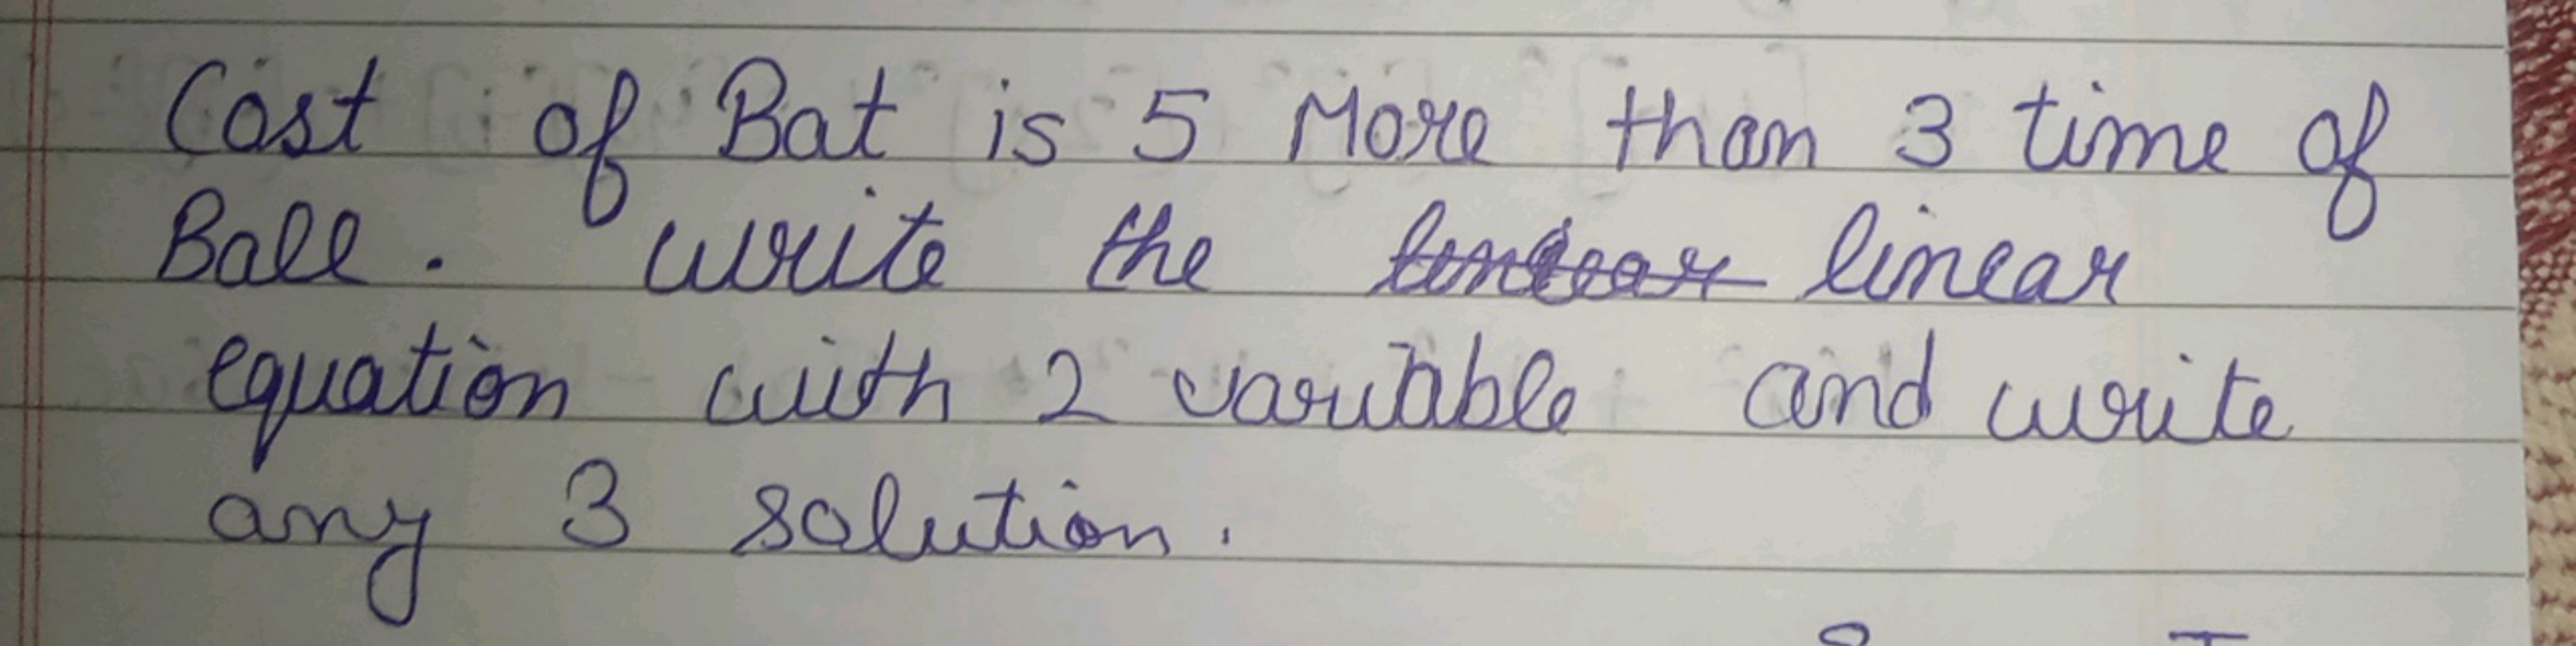 Cost of Bat is 5 More than 3 time of
Ball. write the linear
equation with 2 variable and write
any 3 solution.